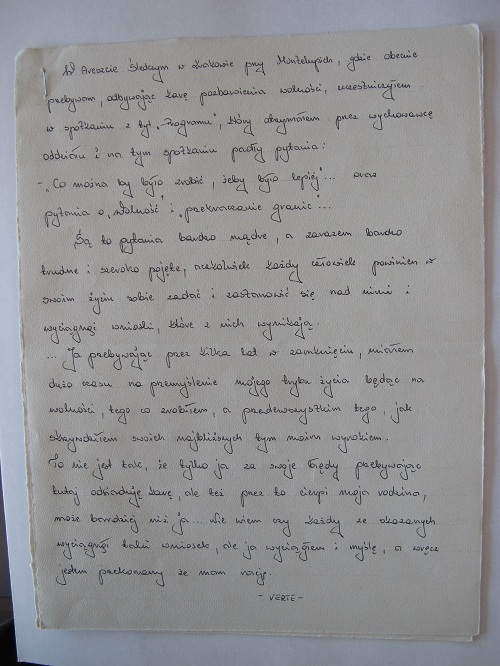 W Areszcie Śledczym w Krakowie przy Montelupich, gdzie obecnie
przebywam, odbywając karę pozbawienia wolności, uczestniczyłem
w spotkaniu z tyt. „Programu”, który otrzymałem przez wychowawcę
oddziału i na tym spotkaniu padły pytania:
- „Co można by było zrobić, żeby było lepiej”... oraz
pytania o „Wolność i „przekraczanie granic”...
Są to pytania bardzo mądre, a zarazem bardzo
trudne i szeroko pojęte, aczkolwiek każdy człowiek powinien w
swoim życiu sobie zadać i zastanowić się nad nimi i
wyciągnąć wnioski, które z nich wynikają.
... Ja przebywając przez kilka lat w zamknięciu, miałem
dużo czasu na przemyślenie mojego trybu życia będąc na
wolności, tego co zrobiłem, a przedewszystkim tego, jak
skrzywdziłem swoich najbliższych tym moim wyrokiem.
To nie jest tak, że tylko ja za swoje błędy przebywając
tutaj odsiaduję karę, ale też przez to cierpi moja rodzina,
może bardziej niż ja... Nie wiem czy każdy ze skazanych
wyciągnął taki wniosek, ale ja wyciągłem i myślę, a wręcz
jestem przekonany że mam rację.
- VERTE -